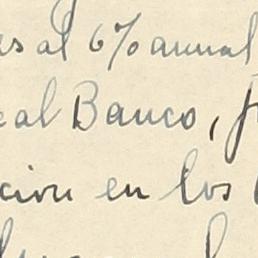 as al 6% annual
al Banco,
cion en los